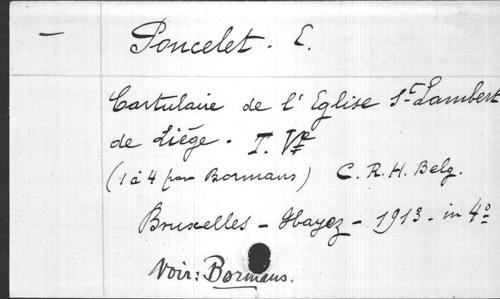 — Poncelet. E.
Cartulaire de l'Eglise St Lambert
de Liége. T. Ve
(1 à 4 par Bormans) C. R. H. Belg.
Bruxelles – Hayez – 1913. in 4°
Voir: Bormans.